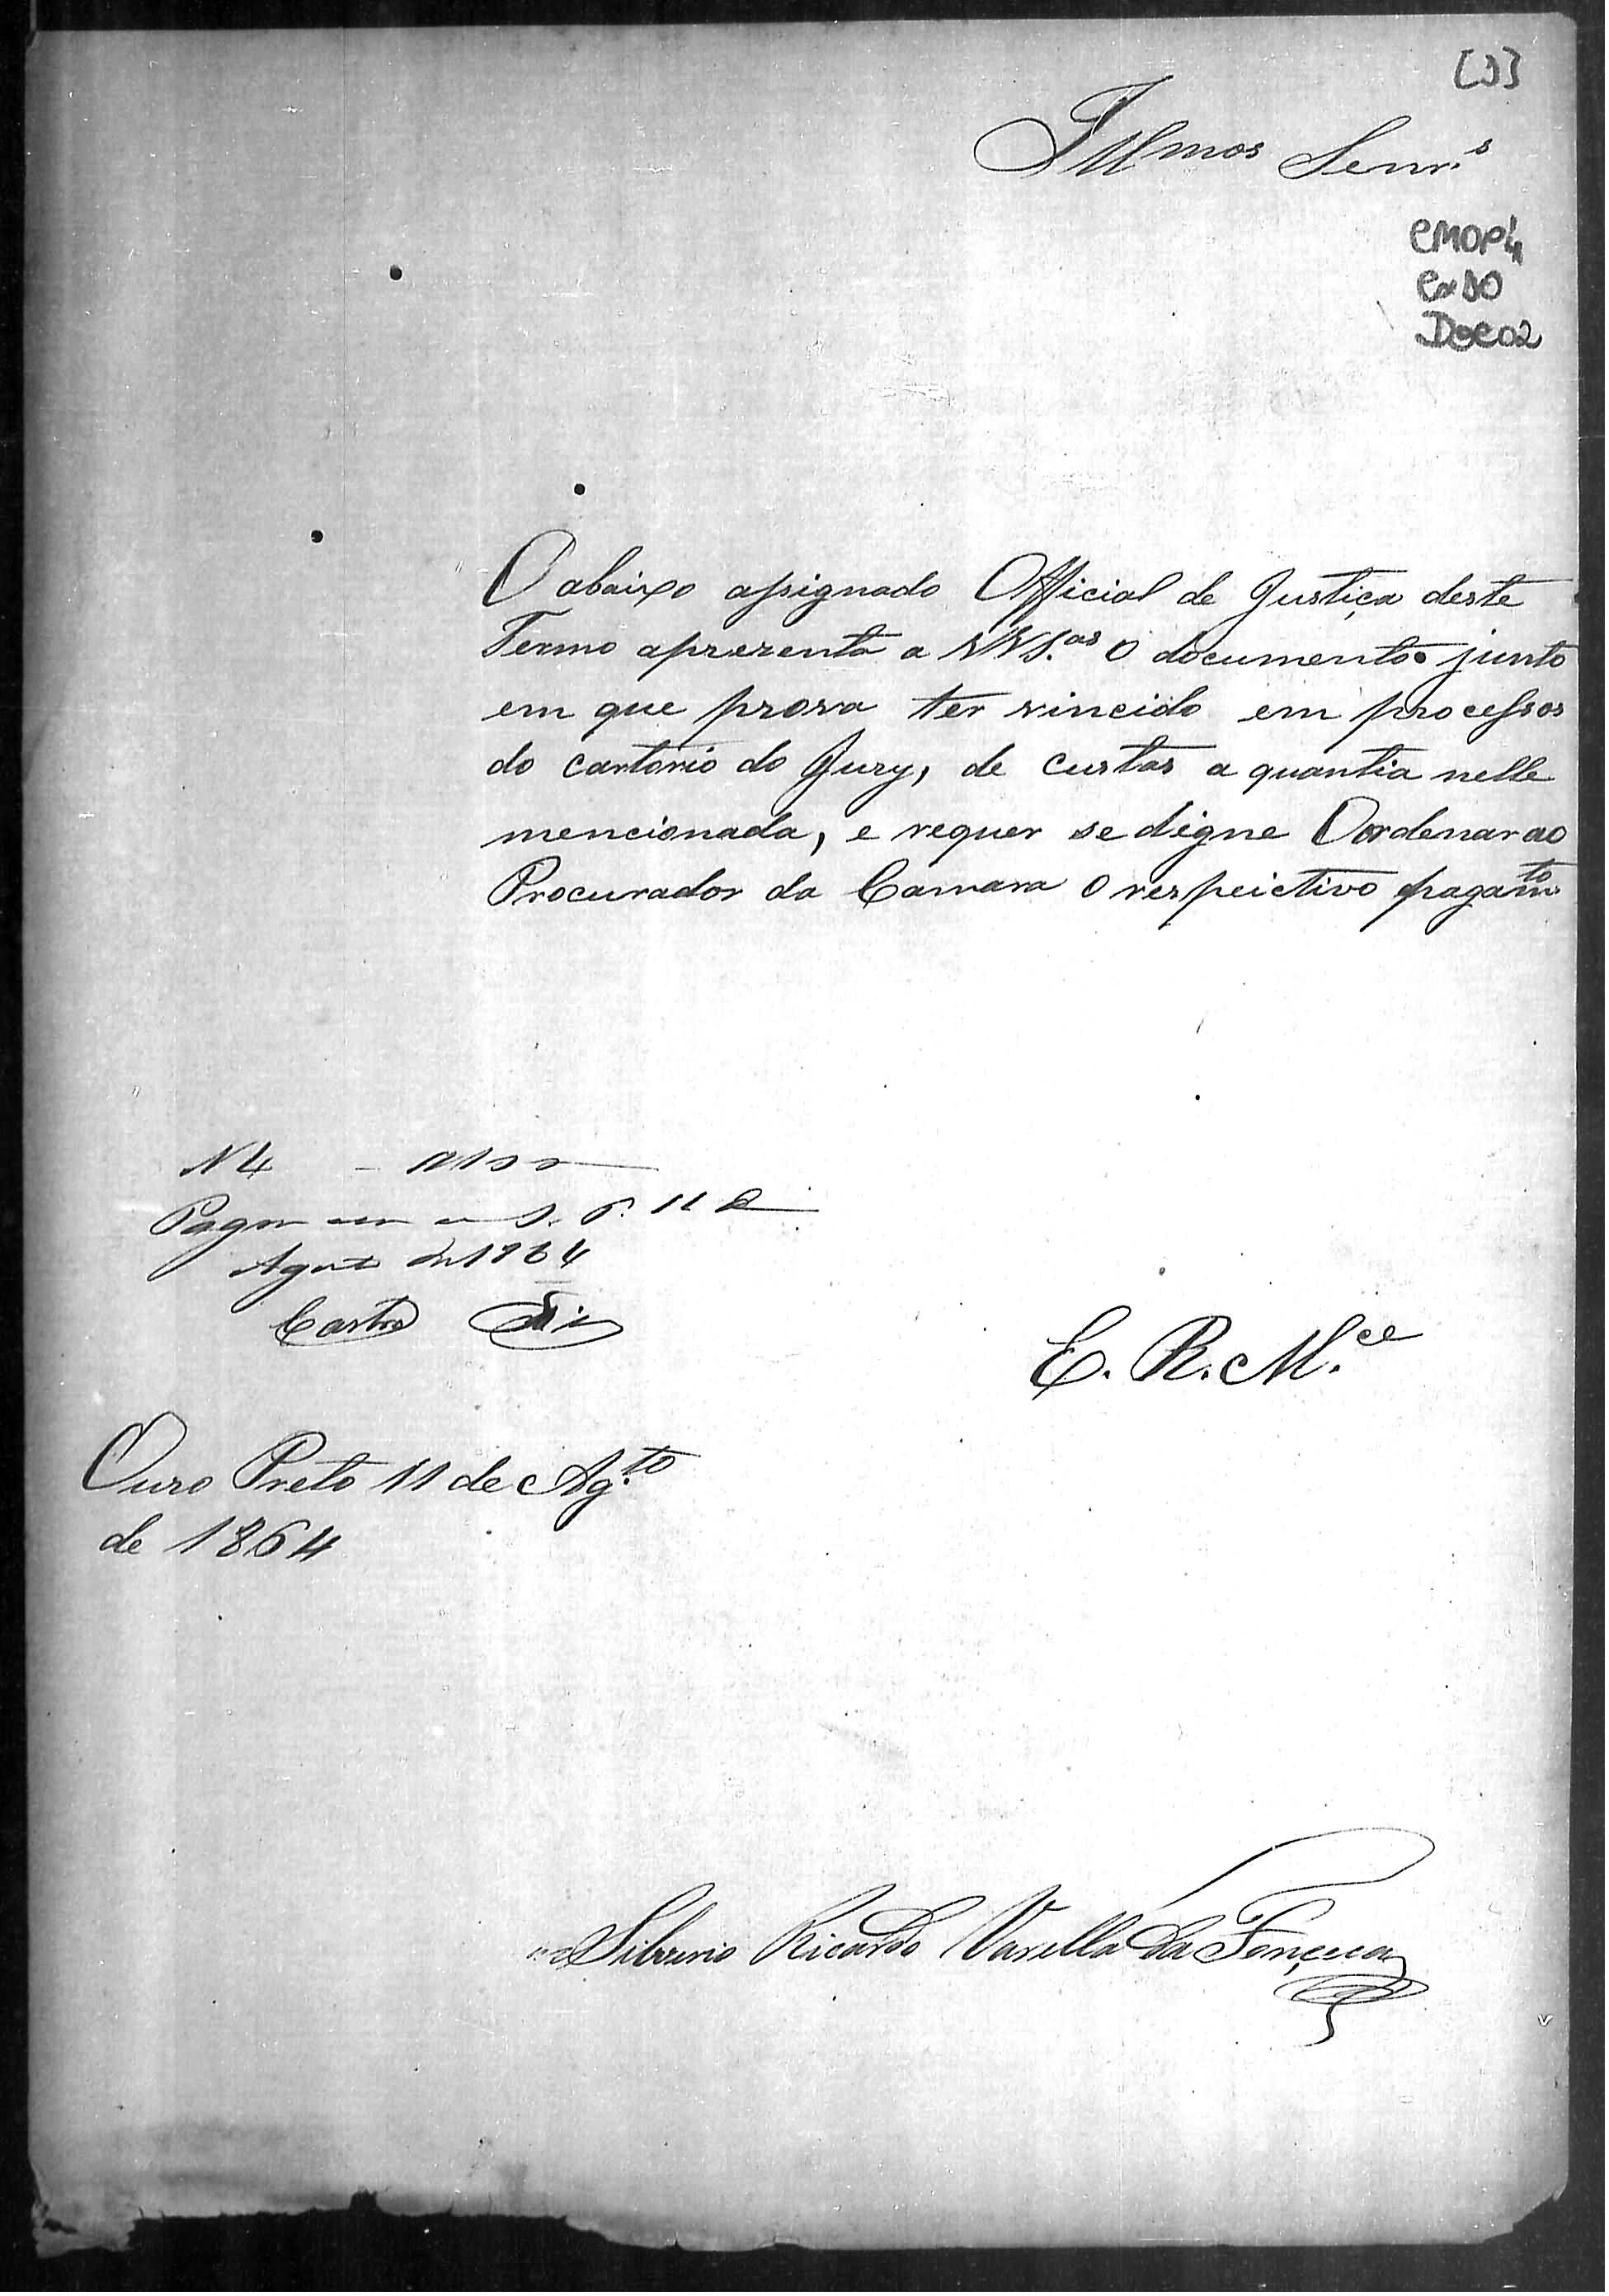 [1]
Illmos Senr.s
CMOP4
Cx 10
Doc 02
O abaixo assignado Official de Justiça deste
Termo aprezenta a VVS.as o documento junto
em que prova ter vincido em processos
do cartorio do Jury, de custas a quantia nelle
mencionada, e requer se digne Oordenar ao
Procurador da Camara o respeictivo pagamto
N 4
Pague 11 de
Agosto de 1864
Castro
E. R. M.ce
Ouro Preto 11 de Ag.to
de 1864
Silverio Ricardo Varella da Fonçeca